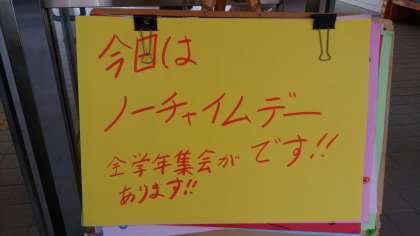 今日は
ノーチャイムデー
です!!
全学年集会が
あります!!